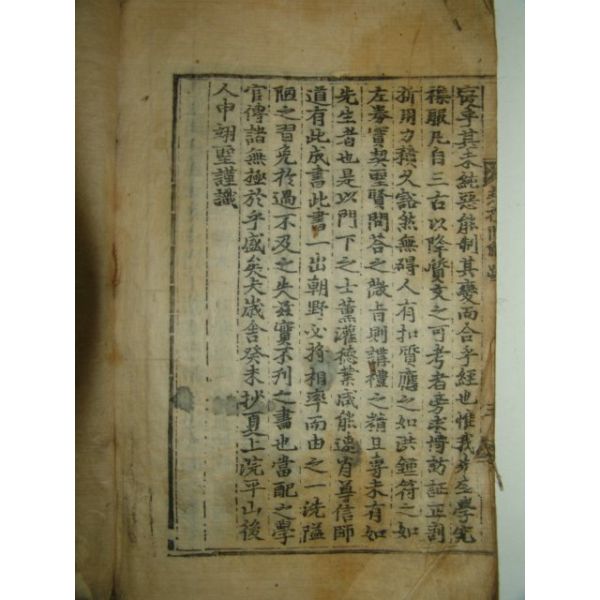 寔乎其未純惡能制其變而合乎經也惟我先生學究
禮服凡自三古以降質文之可考者旁求博訪証正剖
析用力積久谿然無碍人有扣質應之如洪鍾符之如
左券實契聖賢問答之微旨則講禮之精且專未有如
先生者也是以門下之士薰灌德業咸能速肖尊信師
道有此成書此書一出朝野必將相率而由之一洗隘
陋之習免於過不及之失玆實不刊之書也當配之學
官傳諸無極於乎盛矣夫歲舍癸未抄夏上浣平山後
人申翊聖謹識